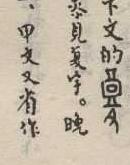 下文的
參見夏字。晚
、甲文又省作